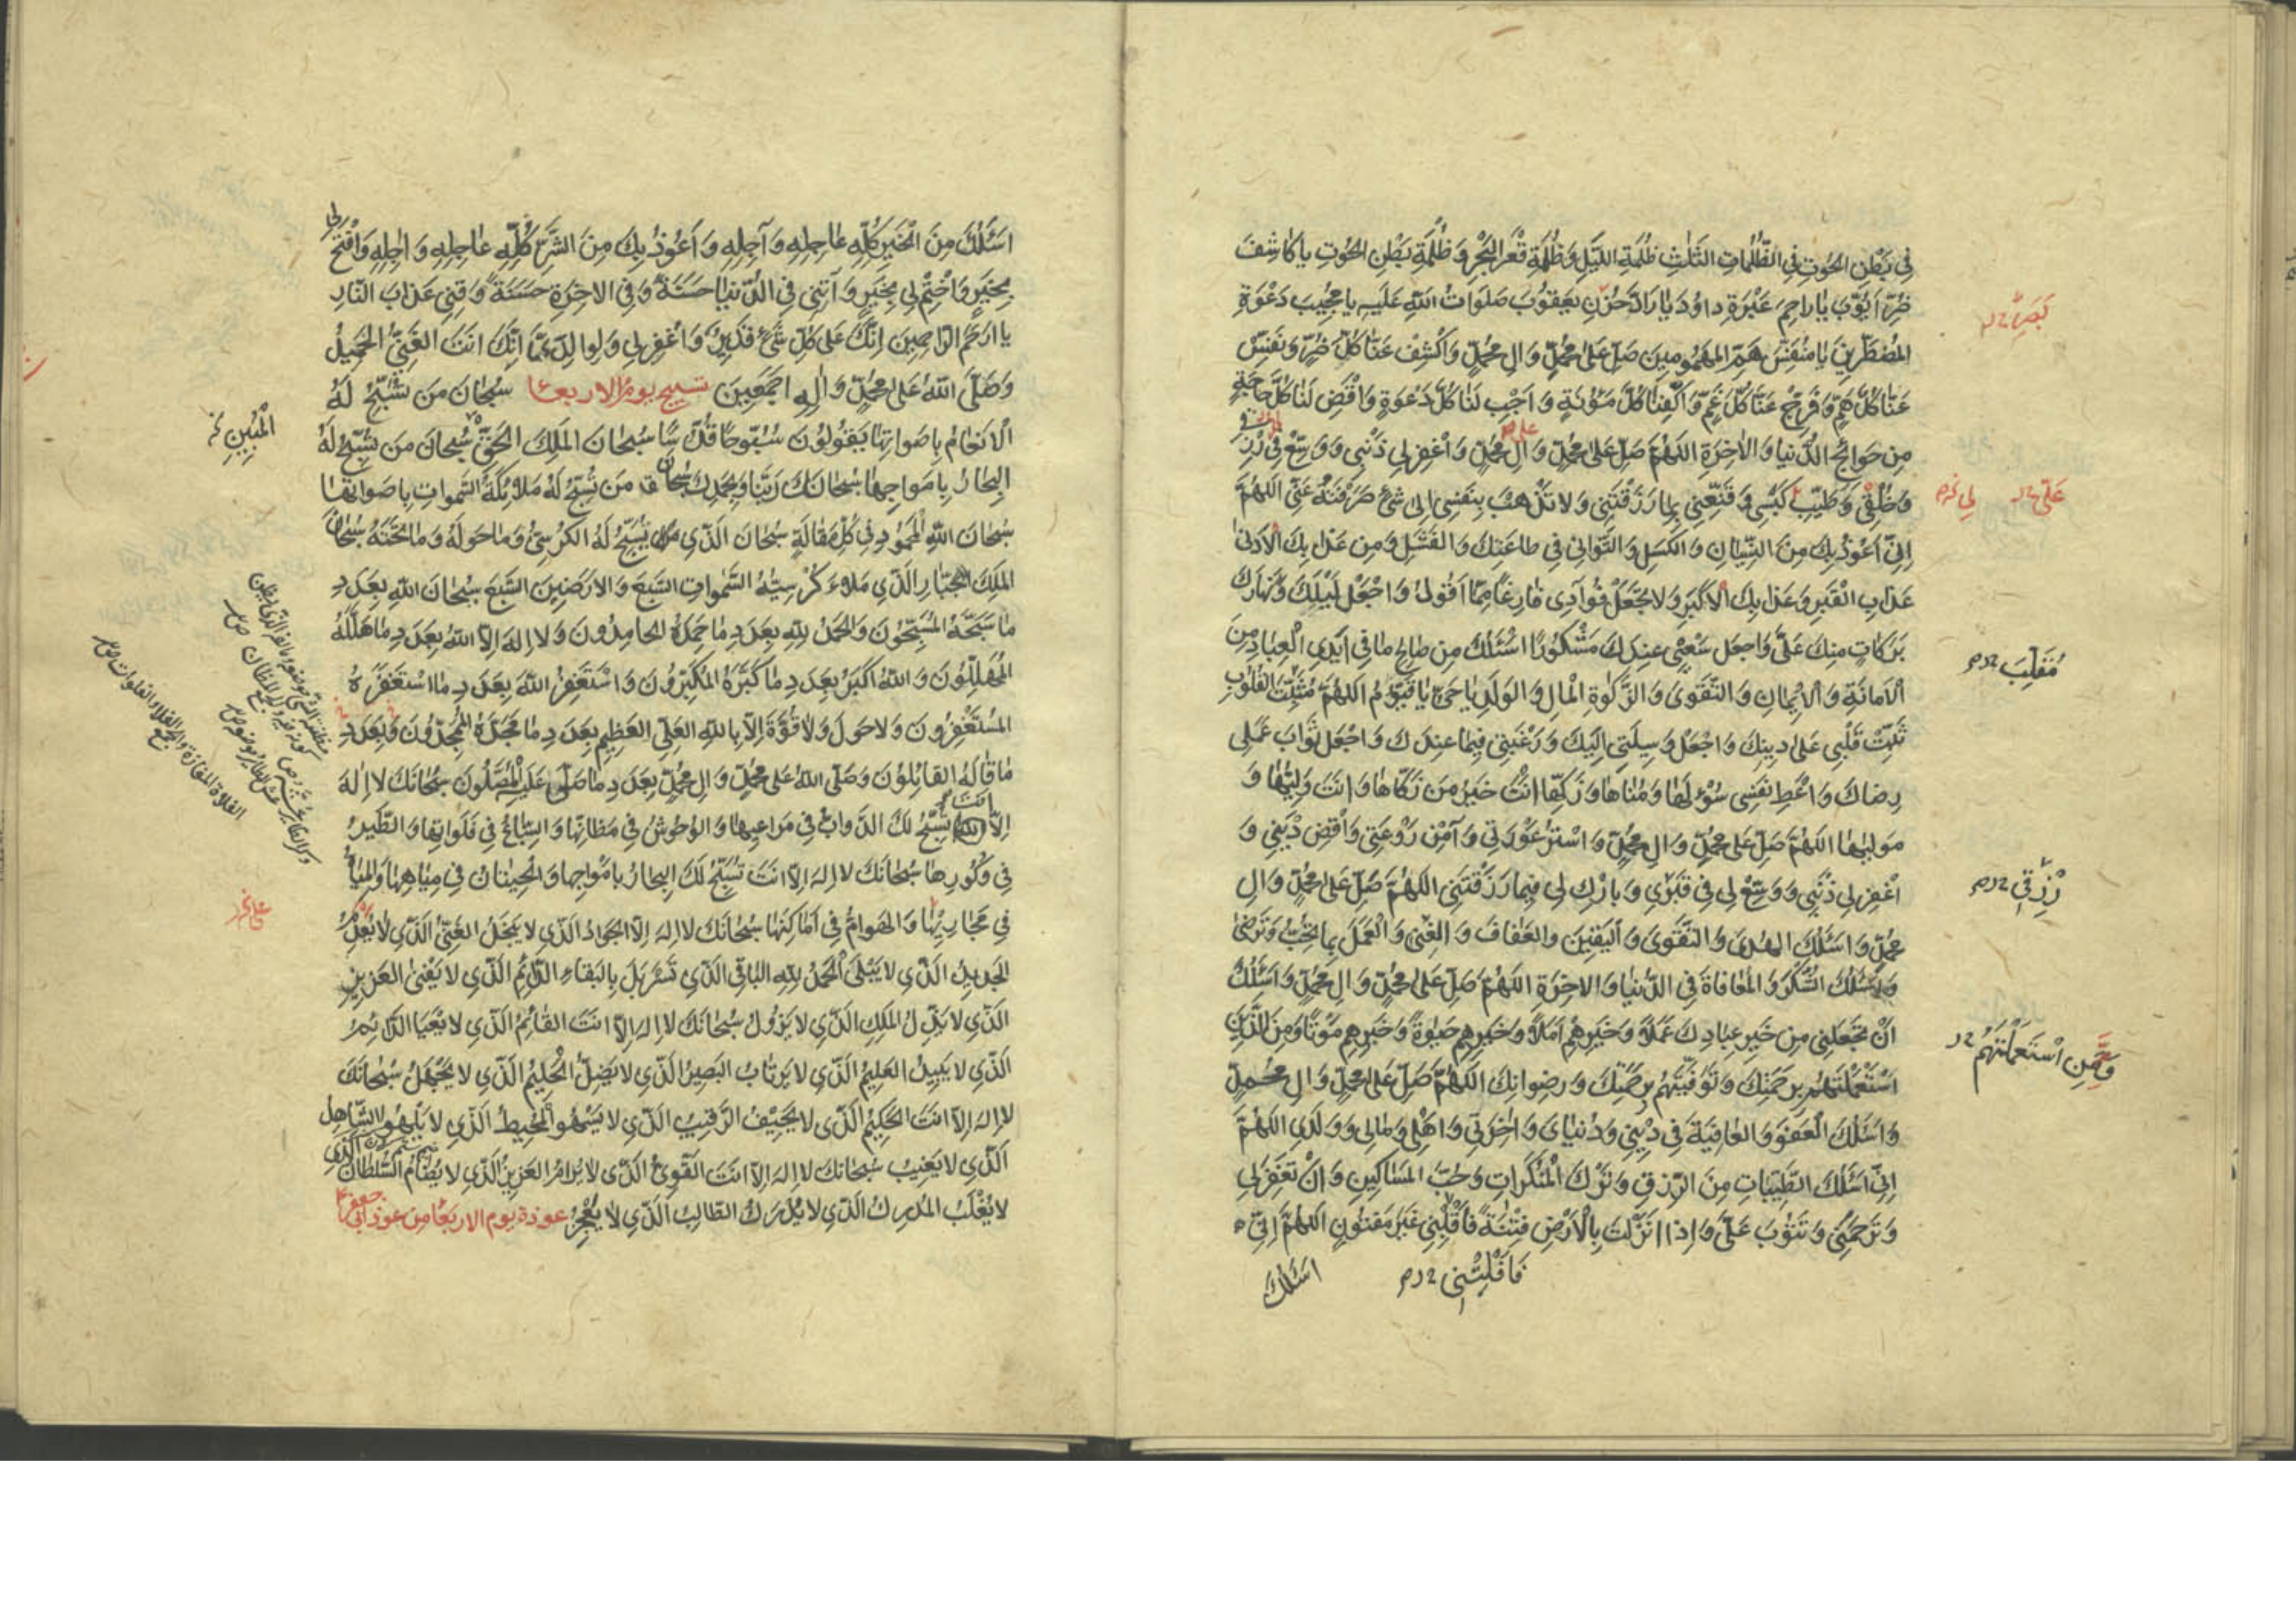 فِي بَطْنِ الحُوتِ فِي الظُّلُمَاتِ الثَّلٰثِ ظُلْمَةِ اللَّيْلِ وَظُلْمَةِ قَعْرِ البَحْرِ وَظُلْمَةِ بَطْنِ الحُوتِ يا كَاشِفَ
ضُرِّ اَيُّوبَ يَا رَاحِمَ عَبْرَةِ داوُدَ يَا رَادَّ حُزْنِ يَعْقُوبَ صَلَوَاتُ اللّٰهِ عَلَيْهِ يا مُجِيبَ دَعْوَةِ
المُضْطَرِّينَ يَا مُنَفِّسَ هَمِّ المَهْمُومِينَ صَلِّ عَلىٰ مُحَمَّدٍ وَالِ مُحَمَّدٍ وَاكْشِفْ عَنَّا كُلَّ ضُرٍّ وَنَفِّسْ
عَنَّا كُلَّ هَمٍّ وَفَرِّجْ عَنَّا كُلَّ غَمٍّ وَاَكْفِنَا كُلَّ مَؤُنَةٍ وَاَجِبْ لَنَا كُلَّ دَعْوَةٍ وَاقْضِ لَنَا كُلَّ حَاجَةٍ
مِن حَوَائِجِ الدُّنيا وَالْاٰخِرَةِ اللّهُمَّ صَلِّ عَلىٰ مُحَمَّدٍ وَالِ مُحَمَّدٍ وَاغْفِر لِي ذَنْبِي وَوَسِّعْ فِي رِزْ
وَخُلُقِي وَطَيِّبْ كَسْبِي وَقَنِّعْنِي بِمَا رَزَقْتَنِي وَلا تَذْهَبْ بِنَفْسِي اِلى شَيْءٍ صَرَفْتَهُ عَنِّي اللّهُمَّ
اِنِّي اَعُوذُ بِكَ مِنَ النِّسْيَانِ وَالكَسَلِ وَالتَّوَانِي فِي طَاعَتِكَ وَالفَشَلِ وَمِن عَذَابِكَ الْاَدْنىٰ
عَذَابِ القَبْرِ وَعَذَابِكَ الْاَكْبَرِ وَلا تَجْعَلْ فُؤَادِي فَارِغًا مِمَّا اَقُولُ وَاجْعَلْ لَيْلَكَ وَنَهَارَكَ
بَرَكَاتٍ مِنكَ عَلَيَّ وَاجعَل سَعْيِي عِندَكَ مَشْكُورًا اَسْئَلُكَ مِن صَالِحِ مَا فِي اَيْدِي الْعِبَادِ مِنَ
الْاَمَانَةِ وَالْاِيمَانِ وَالتَّقْوىٰ وَالزَّكٰوةِ الْمَالِ وَالوَلَدِ يَا حَيُّ يَا قَيُّومُ اللّهُمَّ مُثَبِّتَ القُلُوبِ
ثَبِّتْ قَلْبِي عَلىٰ دِينِكَ وَاجْعَلْ وَسِيلَتِي اِلَيْكَ وَرَغْبَتِي فِيمَا عِندَكَ وَاجْعَل ثَوَابَ عَمَلِي
رِضَاكَ وَاَعْطِ نَفْسِي سُؤْلَهَا وَمُنَاهَا وَزَكِّهَا اَنْتَ خَيْرُ مَنْ زَكَّاهَا وَاَنتَ وَلِيُّهَا وَ
مَولَيٰهَا اللّهُمَّ صَلِّ عَلىٰ مُحَمَّدٍ وَالِ مُحَمَّدٍ وَاسْتُرْ عَوْرَتِي وَآمِنْ رَوْعَتِي وَاقْضِ دَيْنِي وَ
اغْفِر لِي ذَنْبِي وَوَسِّعْ لِي فِي قَبْرِي وَبَارِك لِي فِيمَا رَزَقْتَنِي اللّهُمَّ صَلِّ عَلىٰ مُحَمَّدٍ وَالِ
مُحَمَّدٍ وَاَسْئَلُكَ الهُدىٰ وَالتَّقْوىٰ وَاليَقِينَ وَالعَفَافَ وَالغِنىٰ وَالْعَمَلَ بِمَا تُحِبُّ وَتَرْضىٰ
وَاَسْئَلُكَ الشُّكْرَ وَالمُعَافَاةَ فِي الدُّنيَا وَالاخِرَةِ اللّهُمَّ صَلِّ عَلىٰ مُحَمَّدٍ وَالِ مُحَمَّدٍ وَاَسْئَلُكَ
اَنْ تَجْعَلَنِي مِن خَيْرِ عِبَادِكَ عَمَلًا وَخَيْرِهِمْ اَمَلًا وَخَيْرِهِم حَيٰوةً وَخَيْرِهِم مَوْتًا وَمِنَ الَّذِينَ
اسْتَعْمَلْتَهُم بِرَحْمَتِكَ وَتَوَفَّيْتَهُمْ بِرَحْمَتِكَ وَرِضْوَانِكَ اللّهُمَّ صَلِّ عَلىٰ مُحَمَّدٍ وَالِ مُحَمَّدٍ
وَاَسْئَلُكَ الْعَفْوَ وَالعَافِيَةَ فِي دِينِي وَدُنيَايَ وَاٰخِرَتِي وَاَهْلِي وَمَالِي وَوَلَدِي اللّهُمَّ
اِنِّي اَسْئَلُكَ الطَّيِّبَاتِ مِنَ الرِّزقِ وَتَرْكَ الْمُنْكَرَاتِ وَحُبَّ المَسَاكِينِ وَاَنْ تَغْفِرَ لِي
وَتَرْحَمَنِي وَتَتُوبَ عَلَيَّ وَاِذَا اَنْزَلتَ بِالْاَرْضِ فِتْنَةً فَاقْلِبْنِي غَيْرَ مَفتُونٍ اللّهُمَّ اِنِّي
اَسْئَلُكَ
مُقَلِّبَ
رِزْقِي
وَمِمَّنِ اسْتَعْمَلْتَهُمْ
اَسْئَلُكَ مِنَ الْخَيْرِ كُلِّهِ عَاجِلِهِ وَآجِلِهِ وَاَعُوذُ بِكَ مِنَ الشَّرِّ كُلِّهِ عَاجِلِهِ وَاٰجِلِهِ وَافْتَحْ لِي
بِخَيْرٍ وَاخْتِمْ لِي بِخَيْرٍ وَآتِنِي فِي الدُّنيَا حَسَنَةً وَفِي الاخِرَةِ حَسَنَةً وَقِنِي عَذَابَ النَّارِ
يا اَرحَمَ الرَّاحِمِينَ اِنَّكَ عَلىٰ كُلِّ شَيْءٍ قَدِيرٌ وَاغْفِر لِي وَلِوالِدَيَّ اِنَّكَ اَنتَ الغَنِيُّ الحَمِيدُ
وَصَلَّى اللّٰهُ عَلىٰ مُحَمَّدٍ وَاٰلِهِ اَجمَعِينَ تسبيح يوم الاربعا سُبْحَانَ مَن تُسَبِّحُ لَهُ
الْاَنعَامُ بِاَصوَاتِهَا يَقُولُونَ سُبُّوحًا قُدُّوسًا سُبحَانَ المَلِكِ الحَقِّ سُبحَانَ مَن تُسَبِّحُ لَهُ
البِحَارُ بِاَموَاجِهَا سُبْحَانَكَ رَبَّنَا وَبِحَمدِكَ سُبْحَانَ مَن تُسَبِّحُ لَهُ مَلَائِكَةُ السَّمٰوَاتِ بِاَصوَاتِهَا
سُبْحَانَ اللّٰهِ المَحْمُودِ فِي كُلِّ مَقَالَةٍ سُبْحَانَ الَّذِي يُسَبِّحُ لَهُ الكُرْسِيُّ وَمَا حَولَهُ وَمَا تَحْتَهُ سُبْحَانَ
المَلِكِ الجَبَّارِ الَّذِي مَلَاءَ كُرْسِيُّهُ السَّمٰوَاتِ السَّبعَ وَالاَرَضِينَ السَّبعَ سُبْحَانَ اللّٰهِ بِعَدَدِ
مَا سَبَّحَهُ المُسَبِّحُونَ وَالحَمدُ لِلّٰهِ بِعَدَدِ مَا حَمِدَهُ الحَامِدُونَ وَلَا اِلهَ اِلَّا اللّٰهُ بِعَدَدِ مَا هَلَّلَهُ
المُهَلِّلُونَ وَاللّٰهُ اَكبَرُ بِعَدَدِ مَا كَبَّرَهُ المُكَبِّرُونَ وَاَسْتَغْفِرُ اللّٰهَ بِعَدَدِ مَا اسْتَغْفَرَهُ
المُسْتَغْفِرُونَ وَلَا حَولَ وَلَا قُوَّةَ اِلَّا بِاللّٰهِ العَلِيِّ العَظِيمِ بِعَدَدِ مَا مَجَّدَهُ المُمَجِّدُونَ وَبِعَدَدِ
مَا قَالَهُ القَائِلُونَ وَصَلَّى اللّٰهُ عَلىٰ مُحَمَّدٍ وَالِ مُحَمَّدٍ بِعَدَدِ مَا صَلّى عَلَيْهِ الْمُصَلُّونَ سُبْحَانَكَ لا اِلهَ
اِلَّا انتَ تُسَبِّحُ لَكَ الدَّوَابُّ فِي مَرَاعِيهَا وَالوُحُوشُ فِي مَظَانِّهَا وَالسِّبَاعُ فِي فَلَوَاتِهَا وَالطَّيْرُ
فِي وُكُورِهَا سُبْحَانَكَ لا اِلهَ اِلَّا اَنتَ تُسَبِّحُ لَكَ البِحَارُ بِاَمْوَاجِهَا وَالحِيتَانُ فِي مِيَاهِهَا وَالمِيَاهُ
فِي مَجَارِيهَا وَالهَوَامُّ فِي اَمَاكِنِهَا سُبْحَانَكَ لا اِلهَ اِلَّا الجَوَادُ الَّذِي لا يَبْخَلُ الغَنِيُّ الَّذِي لا يُعْدِمُ
الجَدِيدُ الَّذِي لا يَبْلَى الحَمْدُ لِلّٰهِ البَاقِي الَّذِي تَسَرْبَلَ بِالبَقَاءِ الدَّائِمِ الَّذِي لا يَفْنىٰ العَزِيزِ
الَّذِي لا يَذِلُّ المَلِكِ الَّذِي لا يَزُولُ سُبْحَانَكَ لا اِلهَ اِلَّا اَنتَ القَائِمُ الَّذِي لا يَعْيَا الدَّائِمُ
الَّذِي لا يَبِيدُ العَلِيمُ الَّذِي لا يَرتَابُ البَصِيرُ الَّذِي لا يَضِلُّ الحَلِيمُ الَّذِي لا يَجْهَلُ سُبْحَانَكَ
لا اِلهَ اِلَّا اَنتَ الحَكِيمُ الَّذِي لا يَحِيفُ الرَّقِيبُ الَّذِي لا يَسْهُو المُحِيطُ الَّذِي لا يَلْهُو الشَّاهِدُ
الَّذِي لا يَغِيبُ سُبْحَانَكَ لا اِلهَ اِلَّا اَنتَ القَوِيُّ الَّذِي لا يُرَامُ العَزِيزُ الَّذِي لا يُضَامُ السُّلطَانُ الَّذِي
لا يُغْلَبُ المُدْرِكُ الَّذِي لا يُدْرَكُ الطَّالِبُ الَّذِي لا يُعْجِزُ عوذة يوم الاربعا من عوذ ابي جعفر
الْمُبِينِ